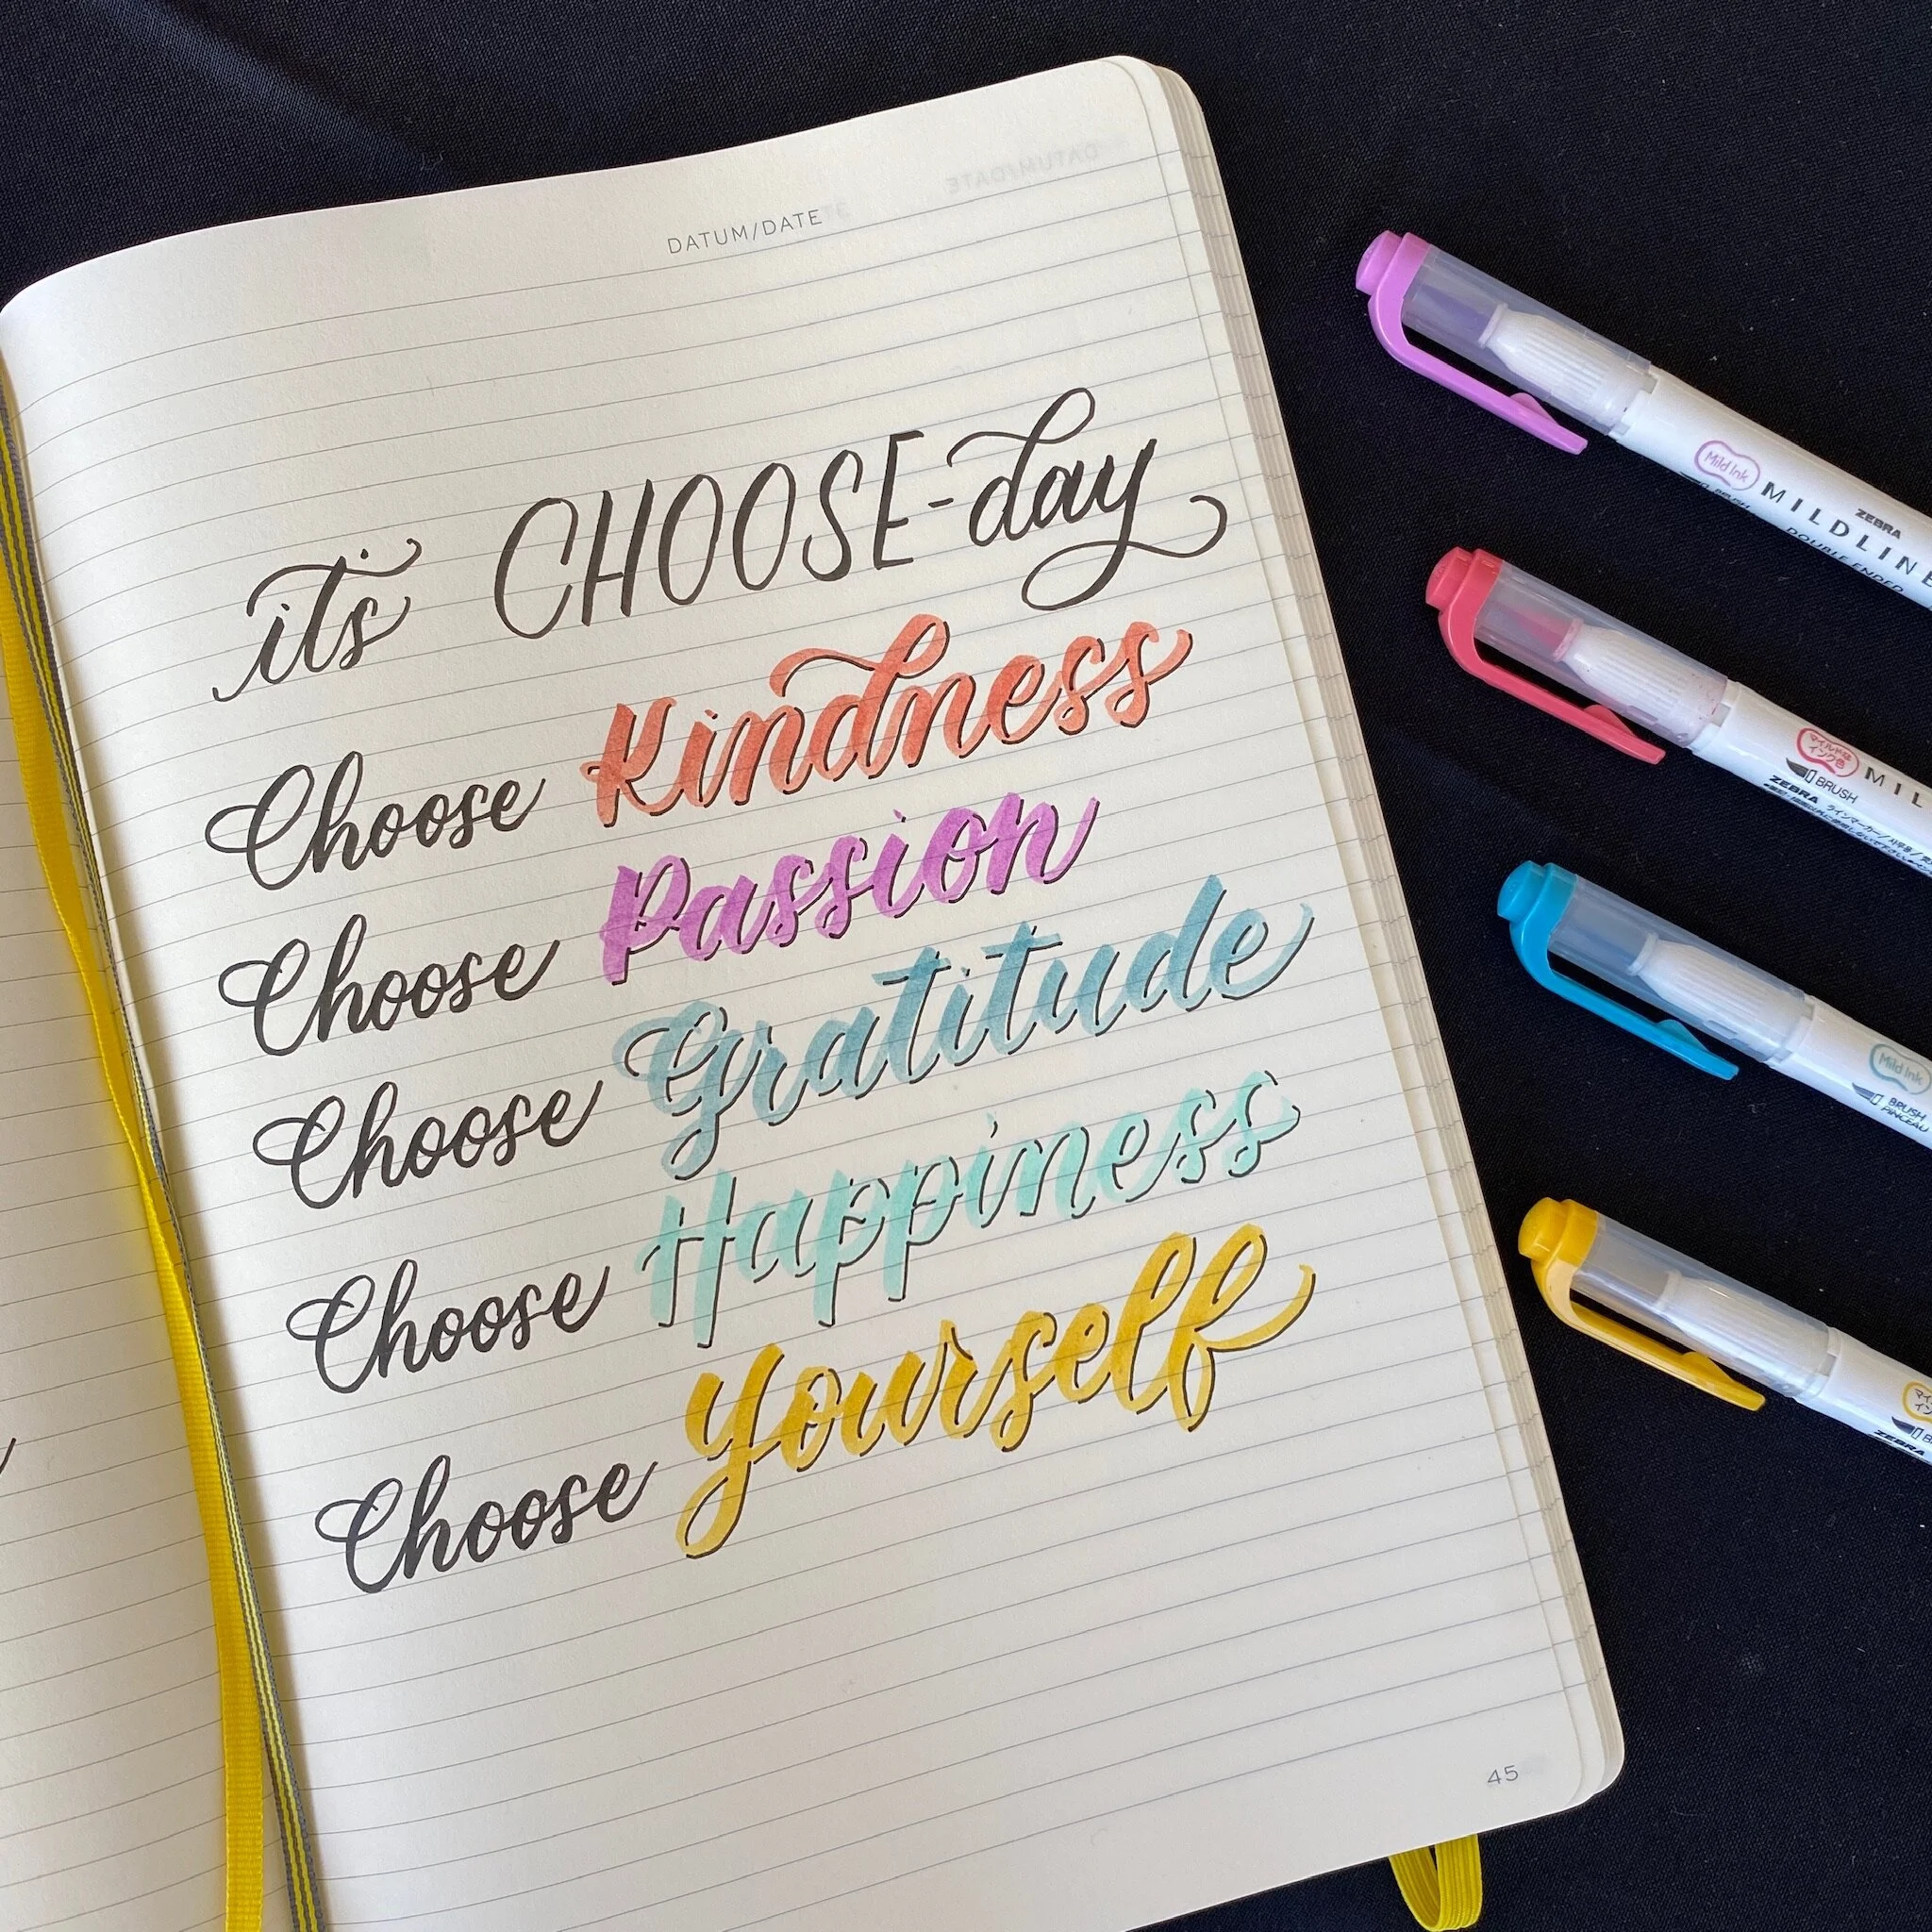 DATUM/DATE
it's CHOOSE-day
Choose Kindness
Choose Passion
Choose Gratitude
Choose Happiness
Choose Yourself
45
Mild Ink
ZEBRA
MILDLINE
DOUBLE ENDED
マイルドな
インク色
BRUSH
MIL
ZEBRA
Mild Ink
BRUSH
PINCEAU
ZEBRA